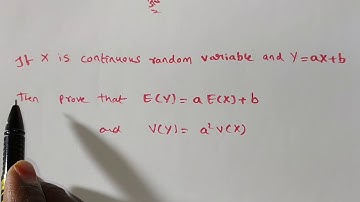 If X is continuous random variable and Y=ax+b
Then prove that E(Y) = a E(X) + b
and V(Y) = a² V(X)